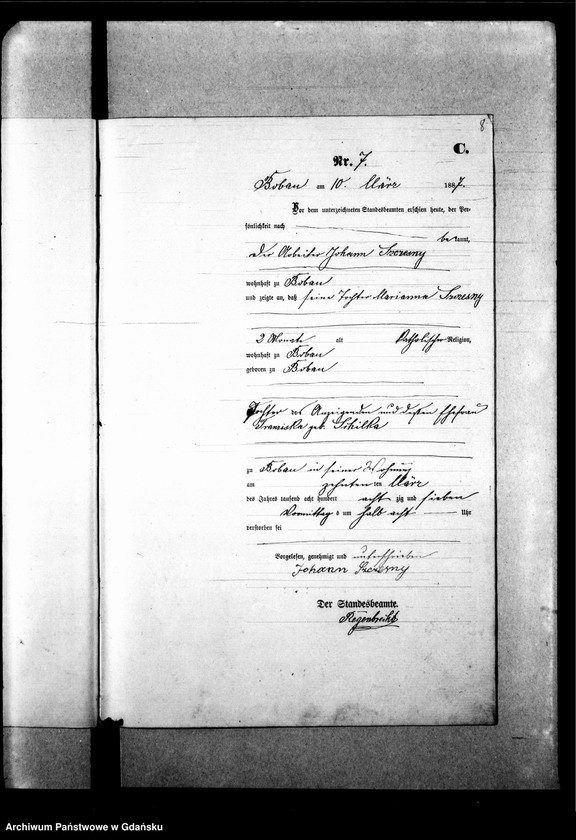 8
C.
Nr. 7.
Boban am 10. März 1887.
Vor dem unterzeichneten Standesbeamten erschien heute, der Per-
sönlichkeit nach
bekannt,
der Arbeiter Johann Szczesny
wohnhaft zu Boban
und zeigte an, daß seine Tochter Marianna Szczesny
2 Monate alt Katholischer Religion,
wohnhaft zu Boban
geboren zu Boban
Tochter des Anzeigenden und dessen Ehefrau
Franziska geb.
zu Boban in seiner Wohnung
am zehnten ten März
des Jahres tausend acht hundert acht zig und sieben
Vormittag s um halb acht Uhr
verstorben sei
Vorgelesen, genehmigt und unterschrieben
Johann Szczesny
Der Standesbeamte.
Regenbrecht
Archiwum Państwowe w Gdańsku